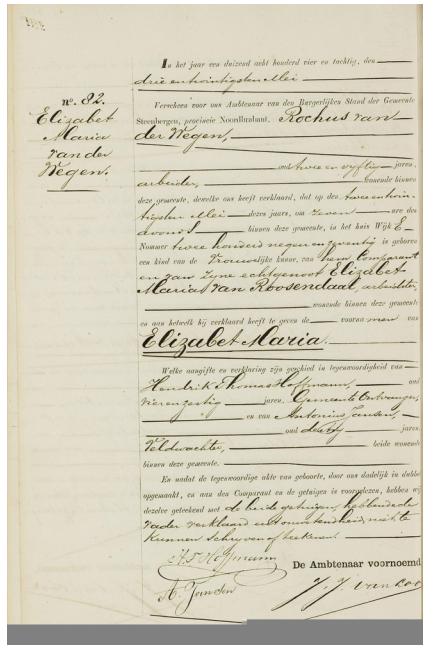 In het jaar een duizend acht honderd vier en tachtig, den
drie en twintigsten Mei
nº. 82.
Elizabet
Maria
van der
Wegen.
Verscheen voor ons Ambtenaar van den Burgerlijken Stand der Gemeente
Steenbergen, provincie Noordbrabant, Rochus van
der Wegen,
oud twee en vyftig jaren,
arbeider, wonende binnen
deze gemeente, dewelke ons heeft verklaard, dat op den twee en twin-
tigsten Mei dezes jaars, om zeven ure des
avonds binnen deze gemeente, in het huis Wijk E
Nommer twee honderd negen en zeventig is geboren
een kind van de Vrouwelijke kunne, van hem Comparant
en van zyne echtgenoot Elizabet
Maria van Roosendaal, arbeidster,
wonende binnen deze gemeente
en aan hetwelk hij verklaard heeft te geven de voornamen van
Elizabet Maria.
Welke aangifte en verklaring zijn geschied in tegenwoordigheid van
Hendrik Thomas Hoffmann, oud
vier en zestig jaren, Gemeente Ontvanger,
en van Antonius Jansen,
oud dertig jaren,
Veldwachter, beide wonende
binnen deze gemeente.
En nadat de tegenwoordige akte van geboorte, door ons dadelijk in dubbel
opgemaakt, en aan den Comparant en de getuigen is voorgelezen, hebben wij
dezelve geteekend met de beide getuigen, hebbende de
vader verklaard uit onwetendheid, niet te
kunnen schryven of teekenen.
H. T. Hoffmann
De Ambtenaar voornoemd
A. Jansen